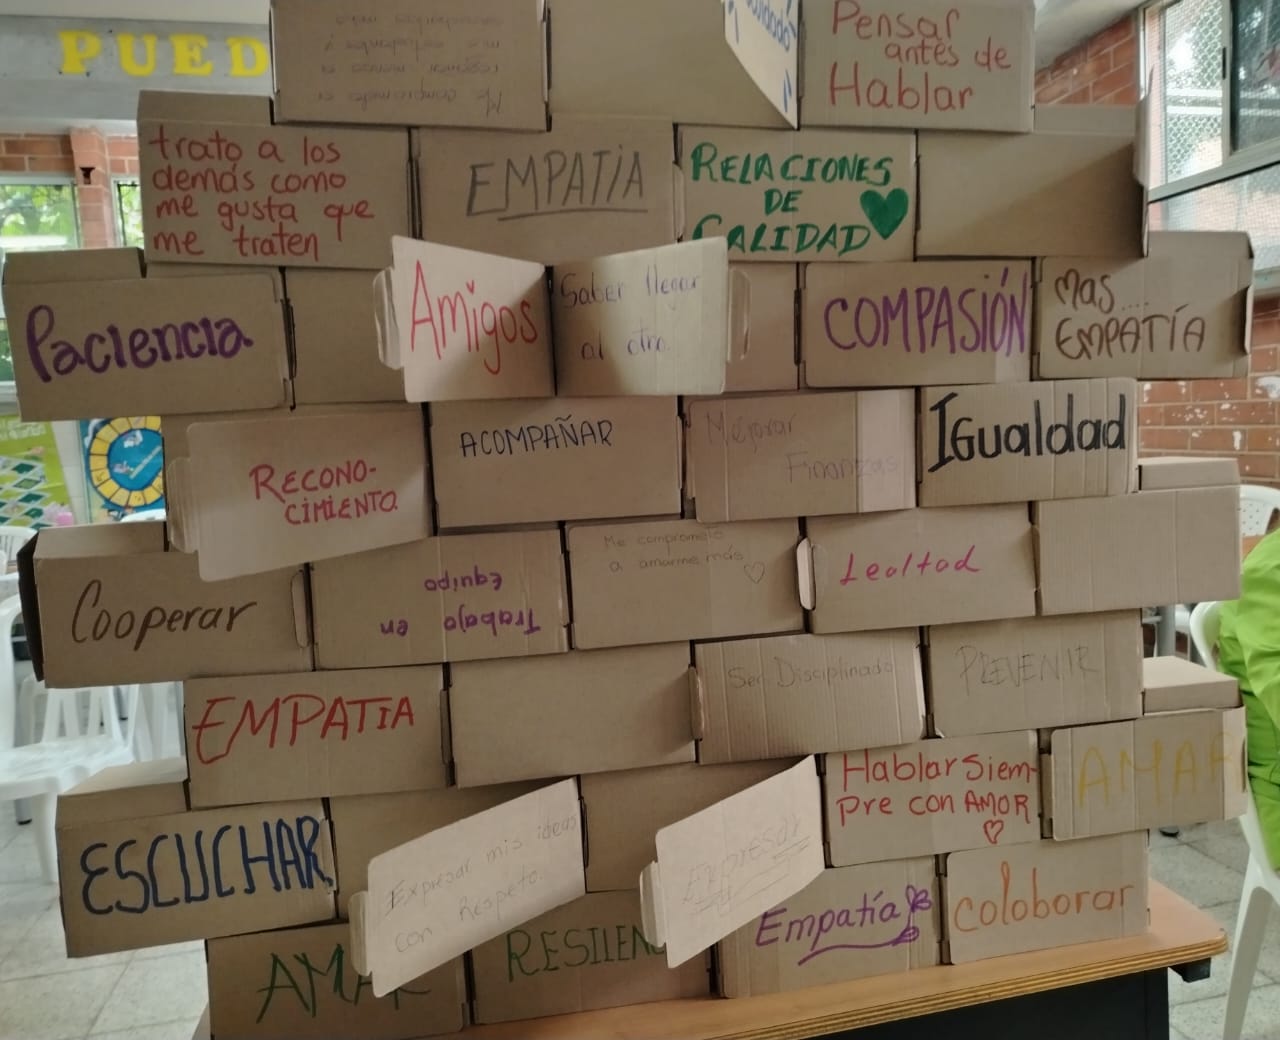 PUED
Me comprometo a
mis estudiantes y
Pensar
antes de
Hablar
trato a los
demás como
me gusta que
me traten
EMPATÍA
RELACIONES
DE
CALIDAD
Paciencia
Amigos
Saber llegar
al otro.
COMPASIÓN
Mas...
EMPATÍA
RECONO-
CIMIENTO
ACOMPAÑAR
Mejorar
Finanzas
Igualdad
Cooperar
Trabajo en
equipo
Me comprometo
a amarme más
Lealtad
EMPATIA
Ser Disciplinado
PREVENIR
Hablar Siem-
pre con AMOR
AMAR
ESCUCHAR
Expresar mis ideas
con Respeto.
Expresar
Empatía
coloborar
AMAR
RESILENC